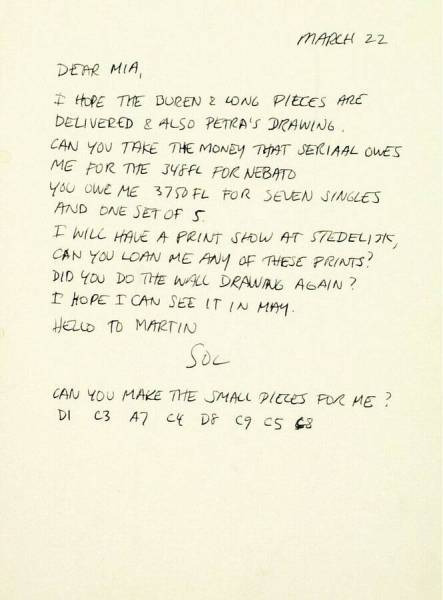 MARCH 22
DEAR MIA,
I HOPE THE BUREN & LONG PIECES ARE
DELIVERED & ALSO PETRA'S DRAWING.
CAN YOU TAKE THE MONEY THAT SERIAAL OWES
ME FOR THE 348FL FOR NEBATO
YOU OWE ME 3750FL FOR SEVEN SINGLES
AND ONE SET OF 5.
I WILL HAVE A PRINT SHOW AT STEDELIJK,
CAN YOU LOAN ME ANY OF THESE PRINTS?
DID YOU DO THE WALL DRAWING AGAIN?
I HOPE I CAN SEE IT IN MAY.
HELLO TO MARTIN
SOL
CAN YOU MAKE THE SMALL PIECES FOR ME?
D1 C3 A7 C4 D8 C9 C5 C8